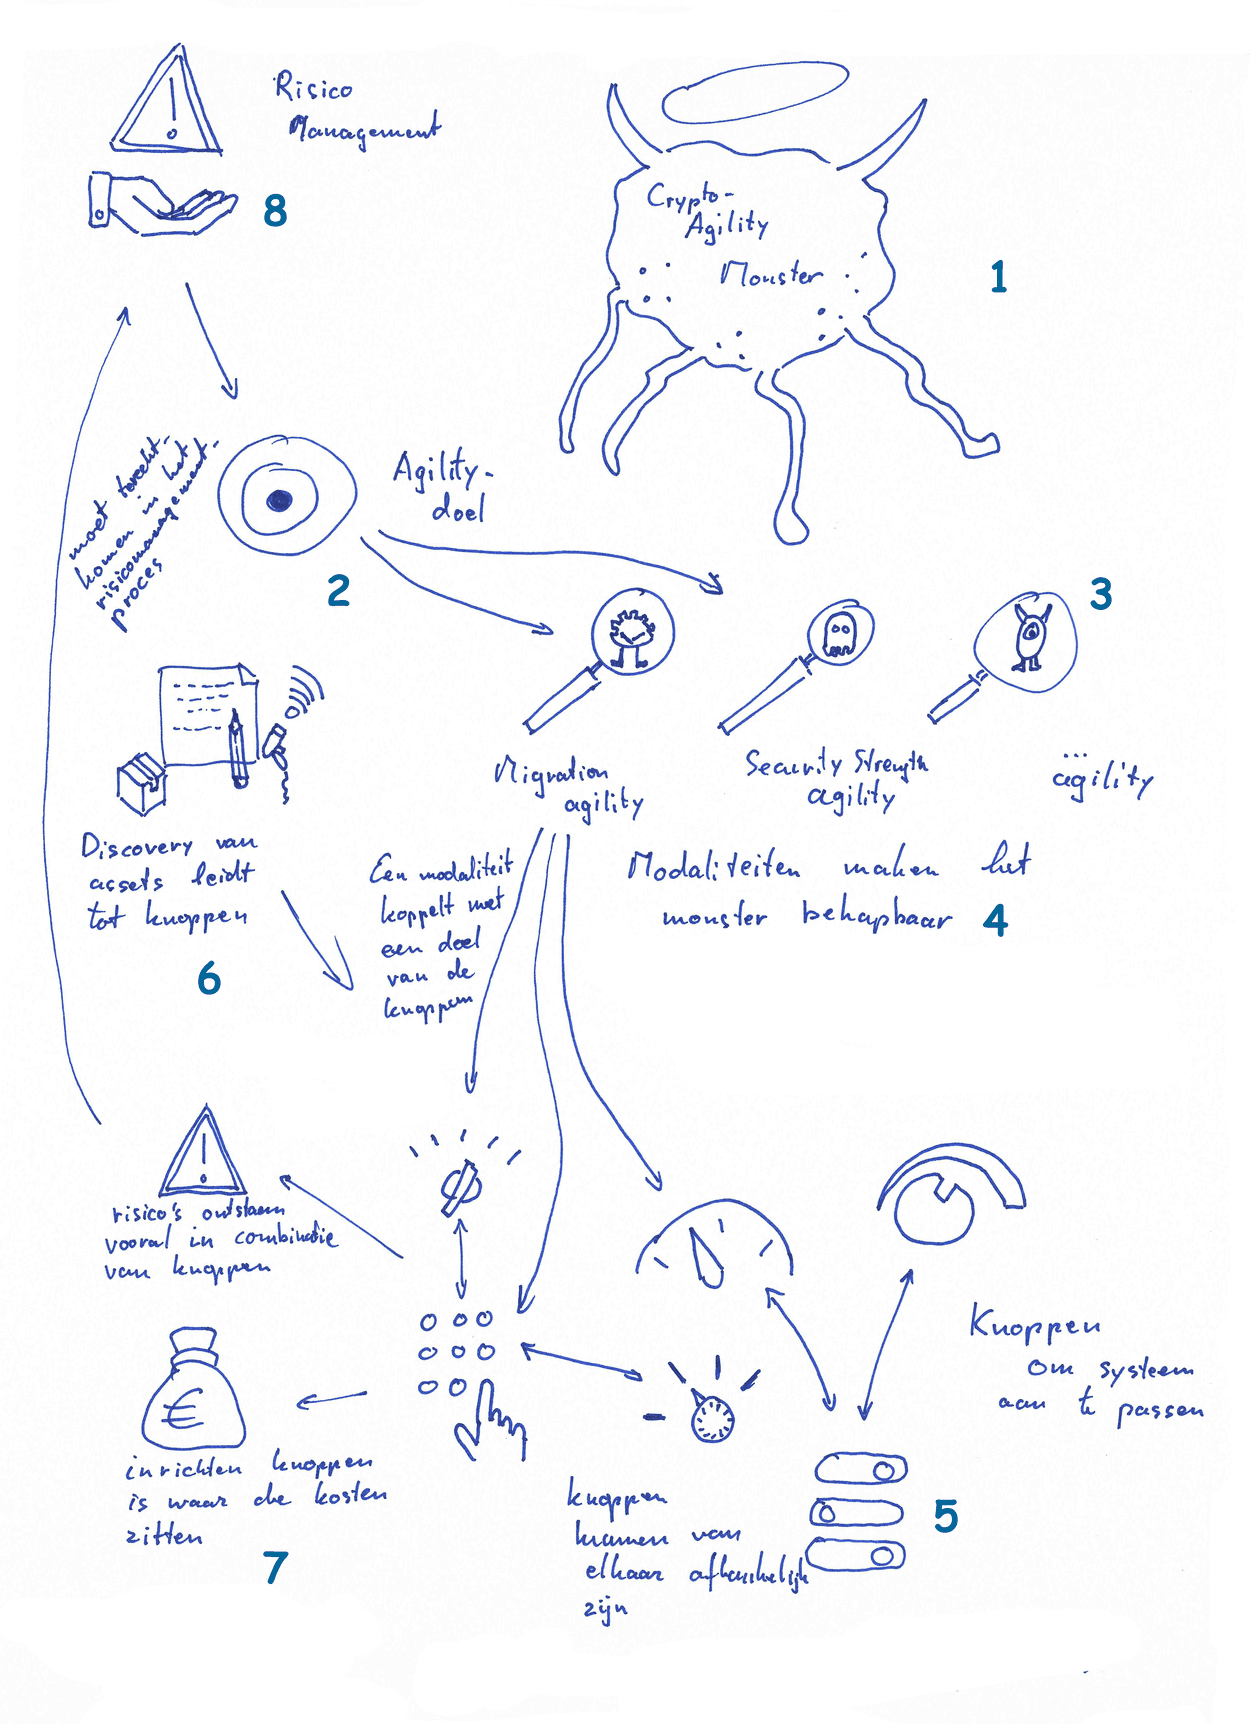 Risico
Management
8
Crypto-
Agility
Monster
1
moet terecht-
komen in het
risicomanagement-
proces
Agility-
doel
2
3
Migration
agility
Security Strength
agility
...
agility
Discovery van
assets leidt
tot knoppen
6
Een modaliteit
koppelt met
een doel
van de
knoppen
Modaliteiten maken het
monster behapbaar
4
risico's ontstaan
vooral in combinatie
van knoppen
€
inrichten knoppen
is waar de kosten
zitten
7
Knoppen
om systeem
aan te passen
knoppen
kunnen van
elkaar afhankelijk
zijn
5